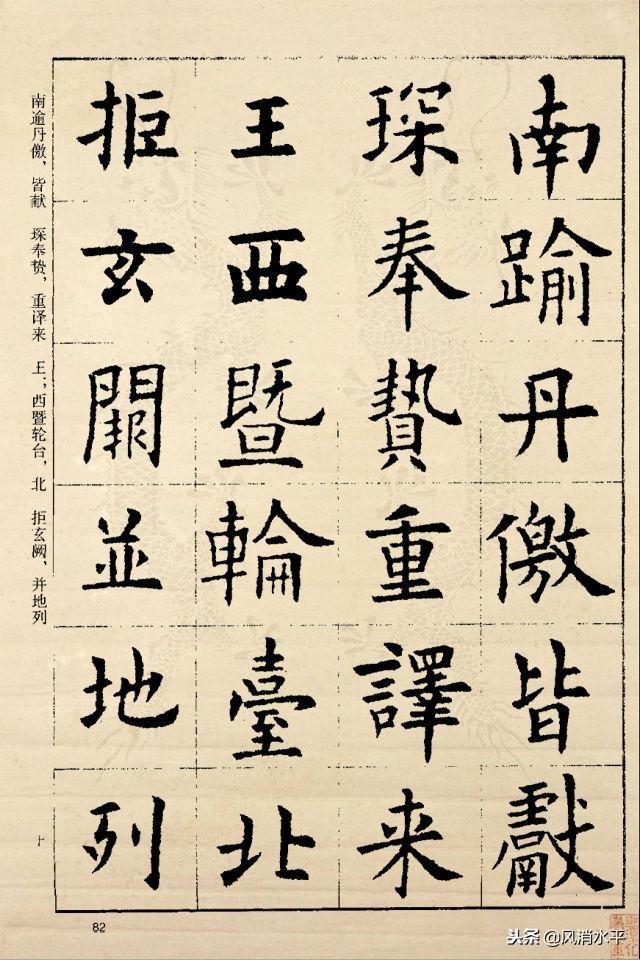 南踰丹儌皆獻
琛奉贄重譯来
王西暨輪臺北
拒玄闕並地列
南逾丹儌，皆献　琛奉贽，重译来　王；西暨轮台，北　拒玄阙，并地列
82
头条 @风消水平